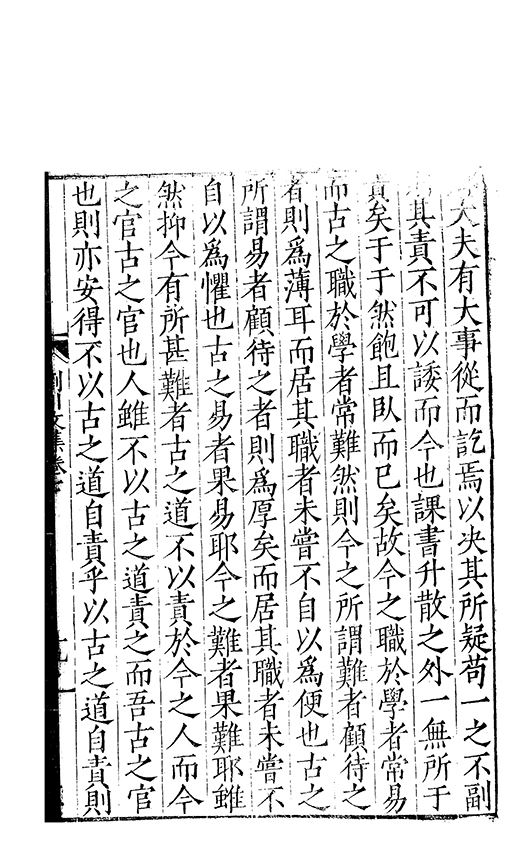 大夫有大事從而訖焉以决其所疑苟一之不副
其責不可以諉而今也課書升散之外一無所于
責矣于于然飽且臥而已矣故今之職於學者常易
而古之職於學者常難然則今之所謂難者顧待之
者則爲薄耳而居其職者未嘗不自以爲便也古之
所謂易者顧待之者則爲厚矣而居其職者未嘗不
自以爲懼也古之易者果易耶今之難者果難耶雖
然抑今有所甚難者古之道不以責於今之人而今
之官古之官也人雖不以古之道責之而吾古之官
也則亦安得不以古之道自責乎以古之道自責則
川文集卷